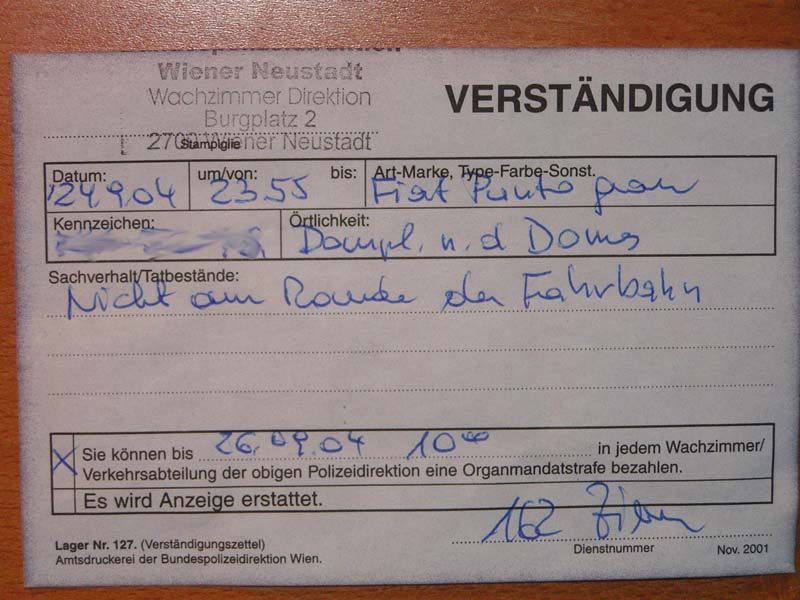 Wiener Neustadt
Wachzimmer Direktion
Burgplatz 2
2700 Wiener Neustadt
Stampiglie
VERSTÄNDIGUNG
Datum: um/von: bis: Art-Marke, Type-Farbe-Sonst.
24.9.04 23.55 Fiat Punto grau
Kennzeichen: Örtlichkeit:
Dompl. n. d Doms
Sachverhalt/Tatbestände:
Nicht am Rande der Fahrbahn
X Sie können bis 26.09.04 10⁰⁰ in jedem Wachzimmer/
Verkehrsabteilung der obigen Polizeidirektion eine Organmandatstrafe bezahlen.
Es wird Anzeige erstattet.
162
Lager Nr. 127. (Verständigungszettel)
Amtsdruckerei der Bundespolizeidirektion Wien.
Dienstnummer
Nov. 2001